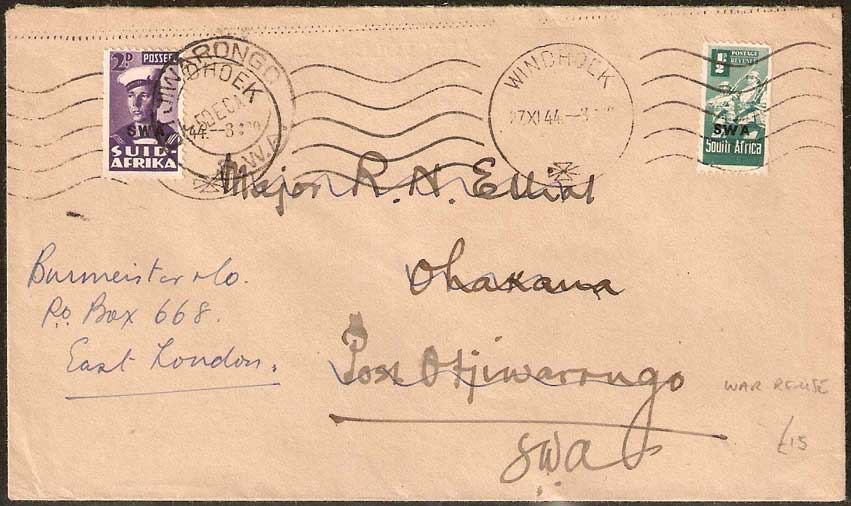 2D POSSEEL
SWA
SUID-
AFRIKA
OTJIWARONGO
S.W.A.
DEC
WINDHOEK
44.-8
WINDHOEK
27XI44.-8
½D POSTAGE
REVENUE
SWA
South Africa
Major R. N. Elliot
Ohakana
Post Otjiwarongo
SWA
Burmeister & Co.
P.O. Box 668.
East London.
WAR REUSE
£15